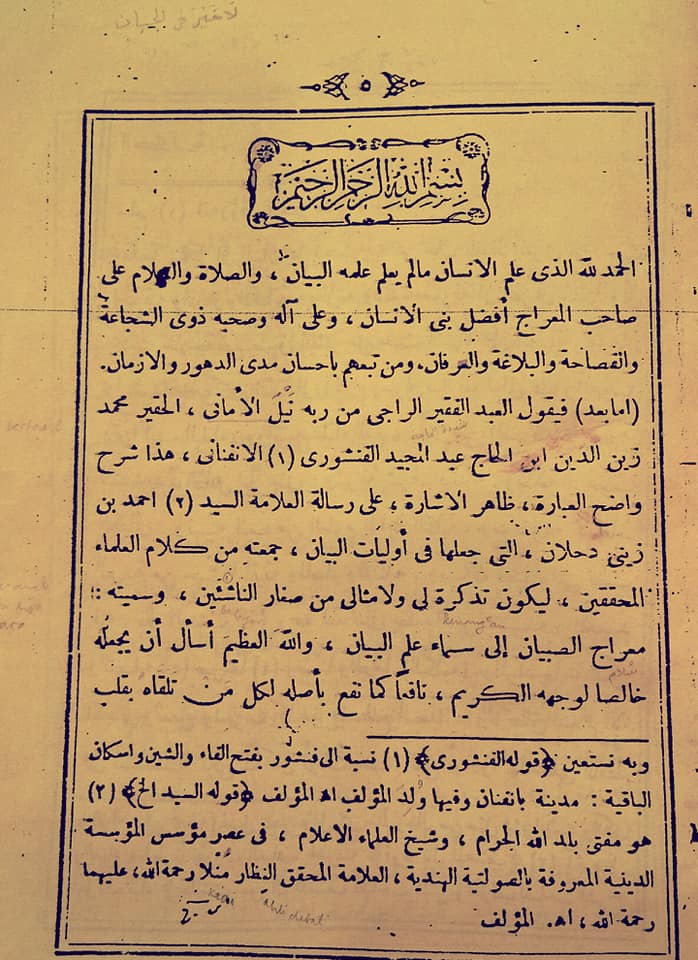 لا خير في الجبان
٥
بسم الله الرحمن الرحيم
الحمد لله الذى علم الانسان مالم يعلم علمه البيان ، والصلاة والسلام على
صاحب المعراج أفضل بنى الانسان ، وعلى آله وصحبه ذوى الشجاعة
والفصاحة والبلاغة والعرفان، ومن تبعهم باحسان مدى الدهور والازمان.
(امابعد) فيقول العبد الفقير الراجى من ربه نَيْلَ الأمانى ، الحقير محمد
زين الدين ابن الحاج عبد المجيد الفنشورى (١) الانفنانى ، هذا شرح
واضح العبارة ، ظاهر الاشارة ، على رسالة العلامة السيد (٢) احمد بن
زينى دحلان ، التى جعلها فى أوليات البيان ، جمعته من كلام العلماء
المحققين ، ليكون تذكرة لى ولامثالى من صغار الناشئين ، وسميته :
معراج الصبيان إلى سماء علم البيان ، والله العظيم أسأل أن يجعله
خالصا لوجهه الكريم ، نافعاً كما نفع بأصله لكل من تلقاه بقلب
وبه نستعين ﴿قوله الفنشورى﴾ (١) نسبة الى فنشور بفتح الفاء والشين واسكان
الباقية : مدينة بانفنان وفيها وُلد المؤلف اهـ المؤلف ﴿قوله السيد الخ﴾ (٢)
هو مفتى بلد الله الحرام ، وشيخ العلماء الاعلام ، فى عصر مؤسس المؤسسة
الدينية المعروفة بالصولتية الهندية ، العلامة المحقق النِظار مُنْلا رحمة الله، عليهما
رحمة الله ، اهـ. المؤلف
ahli debat